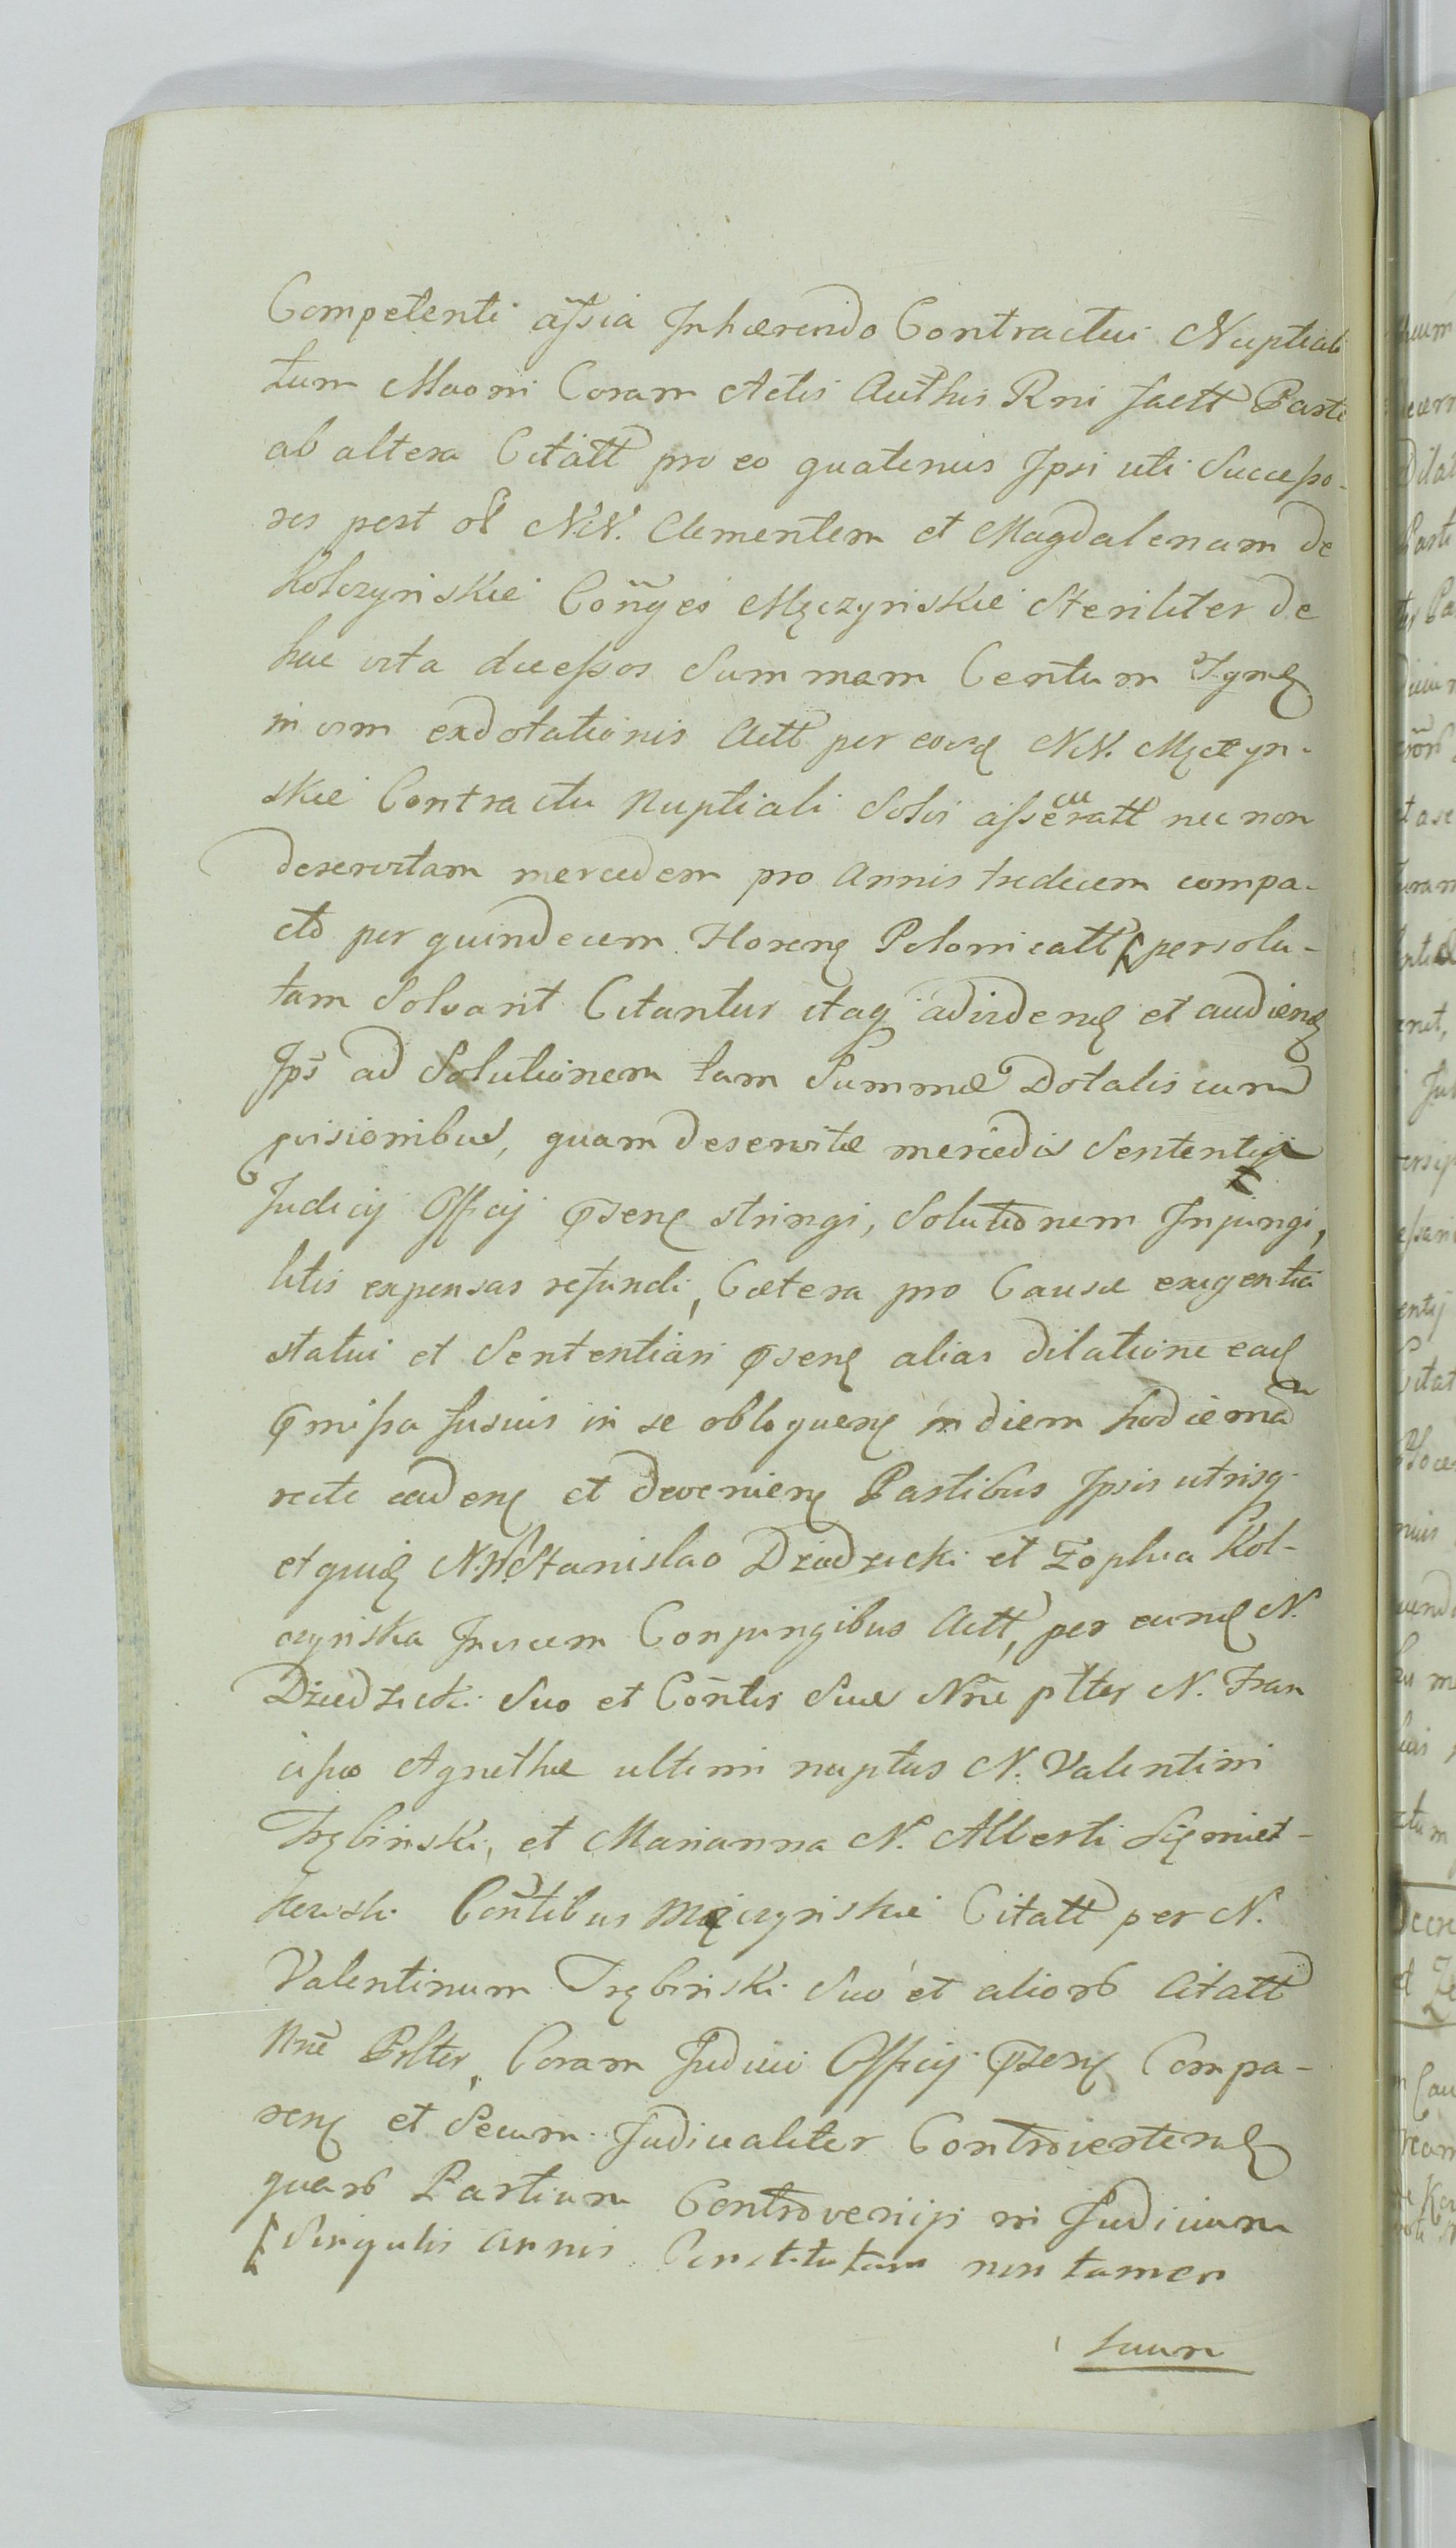 Competenti aſsia Inhærendo Contractui Nuptiali
tum Maoni Coram Actis Auth̃is Rni factt Parte
ab altera Citatt pro eo quatenus Ipsi uti Succeſso-
res post ol NN. Clementem et Magdalenam de
Kolczynskie Coñges Męczynskie Steriliter de
hac vita deceſsos Summam Centum Tynf
in vim exdotationis Actt per eosd NN. Męczyn-
skie Contractu Nuptiali Solvi aſsecuratt nec non
deservitam mercedem pro Annis tredecem compa-
cto per quindecem Floren Polonicatt persolu-
tam Solvant Citantur itaq advidend et audiend
Ips̃ ad Solutionem tam Summæ Dotalis cum
pvisionibus, quam deservitæ mercedis Sententia
Judicij Officij Pręsen stringi, Solutionem Injungi,
litis expensas refundi, Cætera pro Causæ exigentia
statui et Sententiari pręsen alias dilatione ead
pręmiſsa fusius in se obloquen in diem hodiernã
recte caden et devenien Partibus Ipsis utrisq
et quid NN. Stanislao Dziedzicki et Zophia Kol-
czynska Invicem Conjungibus Actt, per eund N.
Dziedzicki Suo et Coñtis Suæ Nñe pltter N. Fran
ciſsco Agnethæ ultimi nuptus N. Valentini
Trębinski, et Marianna N. Alberti Siemiet-
kowski Coñtibus Męczynskie Citatt per N.
Valentinum Trębinski Suo et alior Citatt
Nñe Prlter, Coram Judicio Officij Pręsen Compa-
ren et Secum Judicialiter Controvertend
quar Partium Controversijs in Judicium
Singulis annis Constitutam non tamen
suum